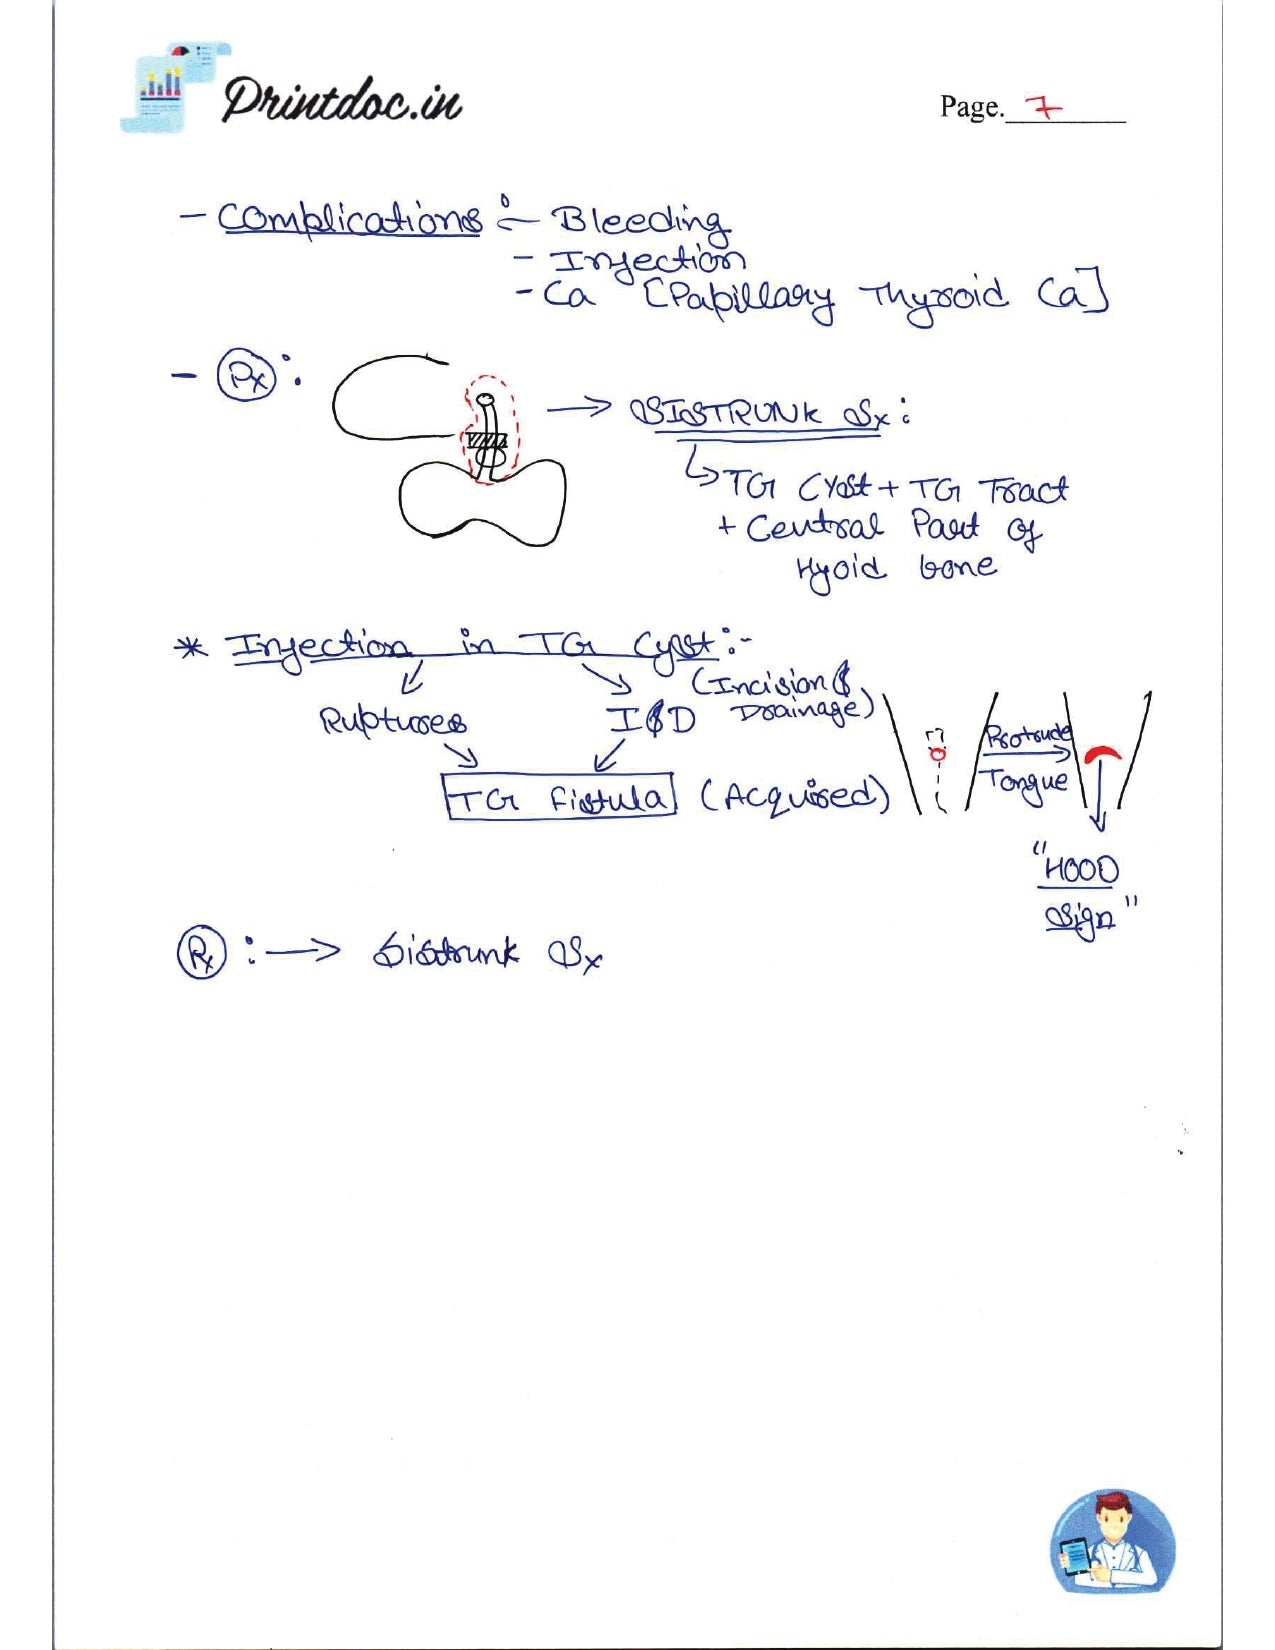 Printdoc.in
Page. 7
- Complications :- Bleeding
- Infection
- Ca [Papillary Thyroid Ca]
- Rx :
→ SISTRUNK Sx :
↳ TG Cyst + TG Tract
+ Central Part of
Hyoid bone
* Infection in TG Cyst :-
Ruptures
I & D (Incision & Drainage)
TG Fistula (Acquired)
Protrude
Tongue
"HOOD
Sign"
Rx : → Sistrunk Sx